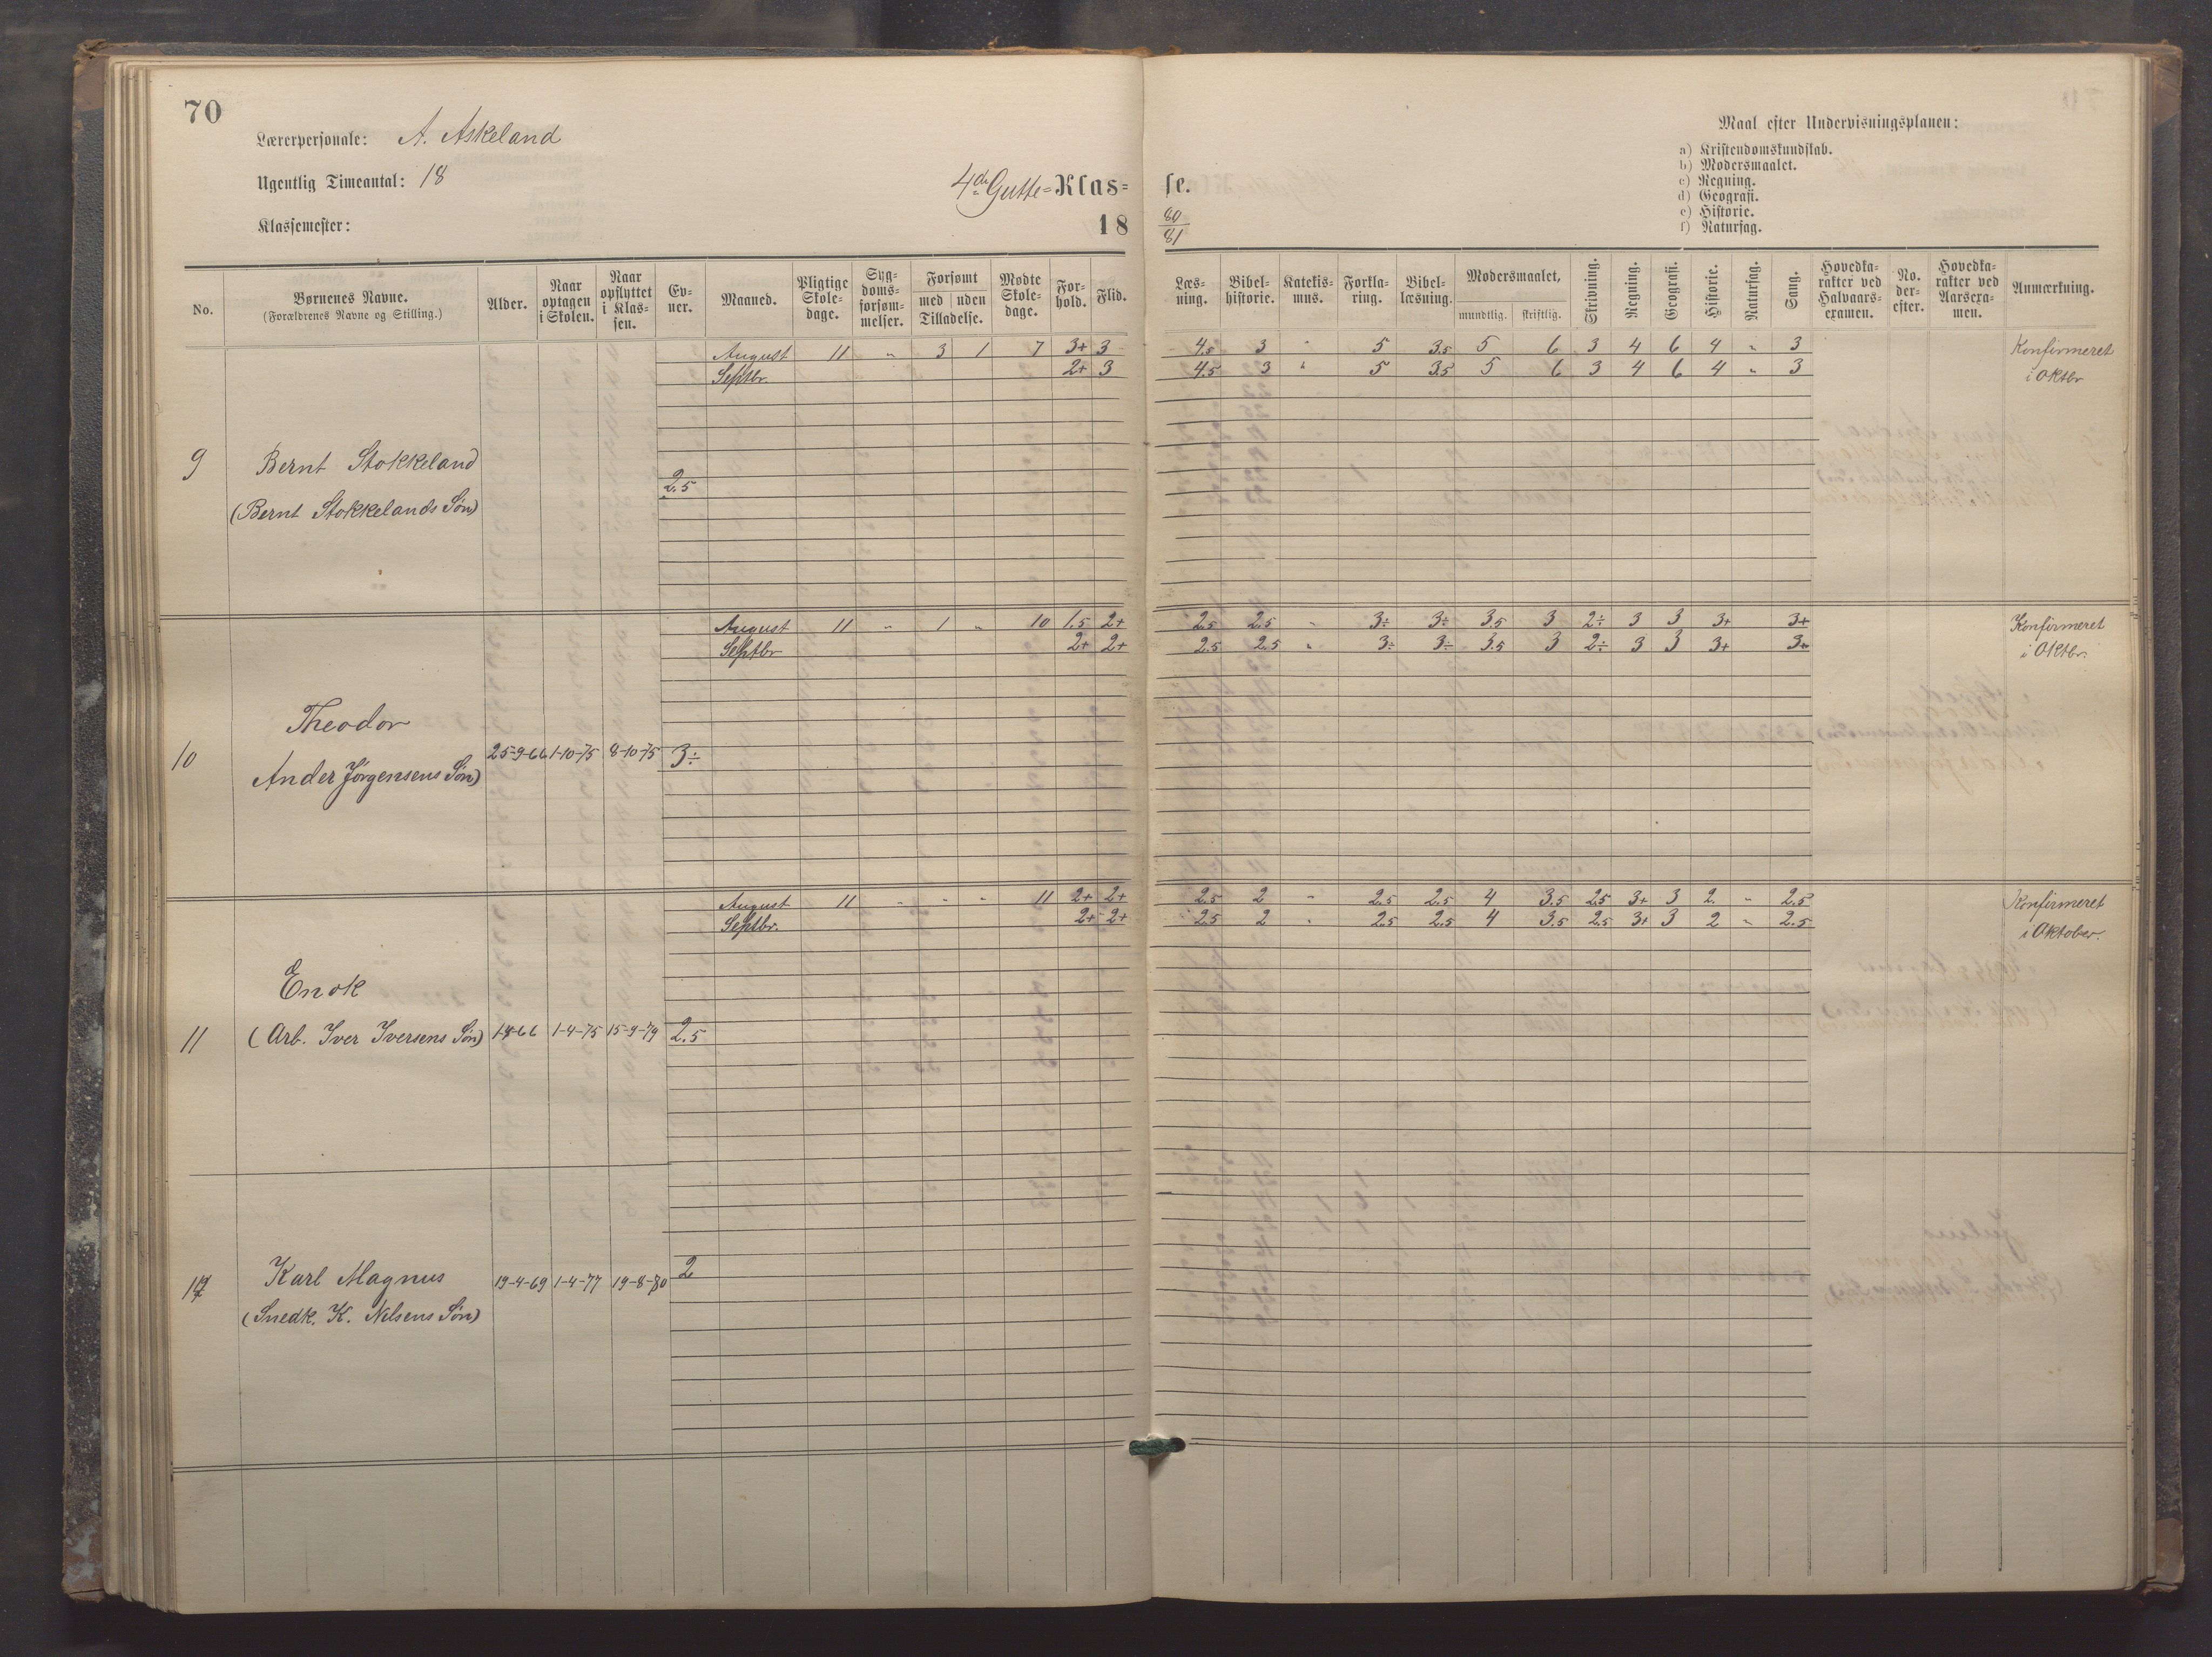 70
Lærerpersonale: A. Askeland
Ugentlig Timeantal: 18
Klassemester:
4de Gutte=Klas= se.
18 80/81
Maal efter Undervisningsplanen:
a) Kristendomskundskab.
b) Modersmaalet.
c) Regning.
d) Geografi.
e) Historie.
f) Naturfag.
No. Børnenes Navne. (Forældrenes Navne og Stilling.) Alder. Naar optagen i Skolen. Naar opflyttet i Klassen. Evner. Maaned. Pligtige Skoledage. Sygdomsforsømmelser. Forsømt med uden Tilladelse. Mødte Skoledage. Forhold. Flid. Læsning. Bibelhistorie. Katekismus. Forklaring. Bibellæsning. Modersmaalet, mundtlig. skriftlig. Skrivning. Regning. Geografi. Historie. Naturfag. Sang. Hovedkarakter ved Halvaarsexamen. No. derefter. Hovedkarakter ved Aarsexamen. Anmærkning.
August 11 " 3 1 7 3+ 3 4.5 3 " 5 3.5 5 6 3 4 6 4 " 3 Konfirmeret
Septbr. 2+ 3 4.5 3 " 5 3.5 5 6 3 4 6 4 " 3 i Oktbr
9 Bernt Stokkeland
2.5
(Bernt Stokkelands Søn)
August 11 " 1 " 10 1.5 2+ 2.5 2.5 " 3÷ 3÷ 3.5 3 2÷ 3 3 3+ 3+ Konfirmeret
Septbr 2+ 2+ 2.5 2.5 " 3÷ 3÷ 3.5 3 2÷ 3 3 3+ 3+ i Oktbr.
Theodor
10 25-9-66 1-10-75 8-10-75 3÷
Ander Jørgensens Søn)
August 11 " " " 11 2+ 2+ 2.5 2 " 2.5 2.5 4 3.5 2.5 3+ 3 2. " 2.5 Konfirmeret
Septbr. 2+ 2+ 2.5 2 " 2.5 2.5 4 3.5 2.5 3+ 3 2 " 2.5 i Oktober.
Enok
11 (Arb. Iver Iversens Søn) 1-4-66 1-4-75 15-9-79 2.5
Karl Magnus 19-4-69 1-4-77 19-8-80 2
(Snedk. K. Nilsens Søn)